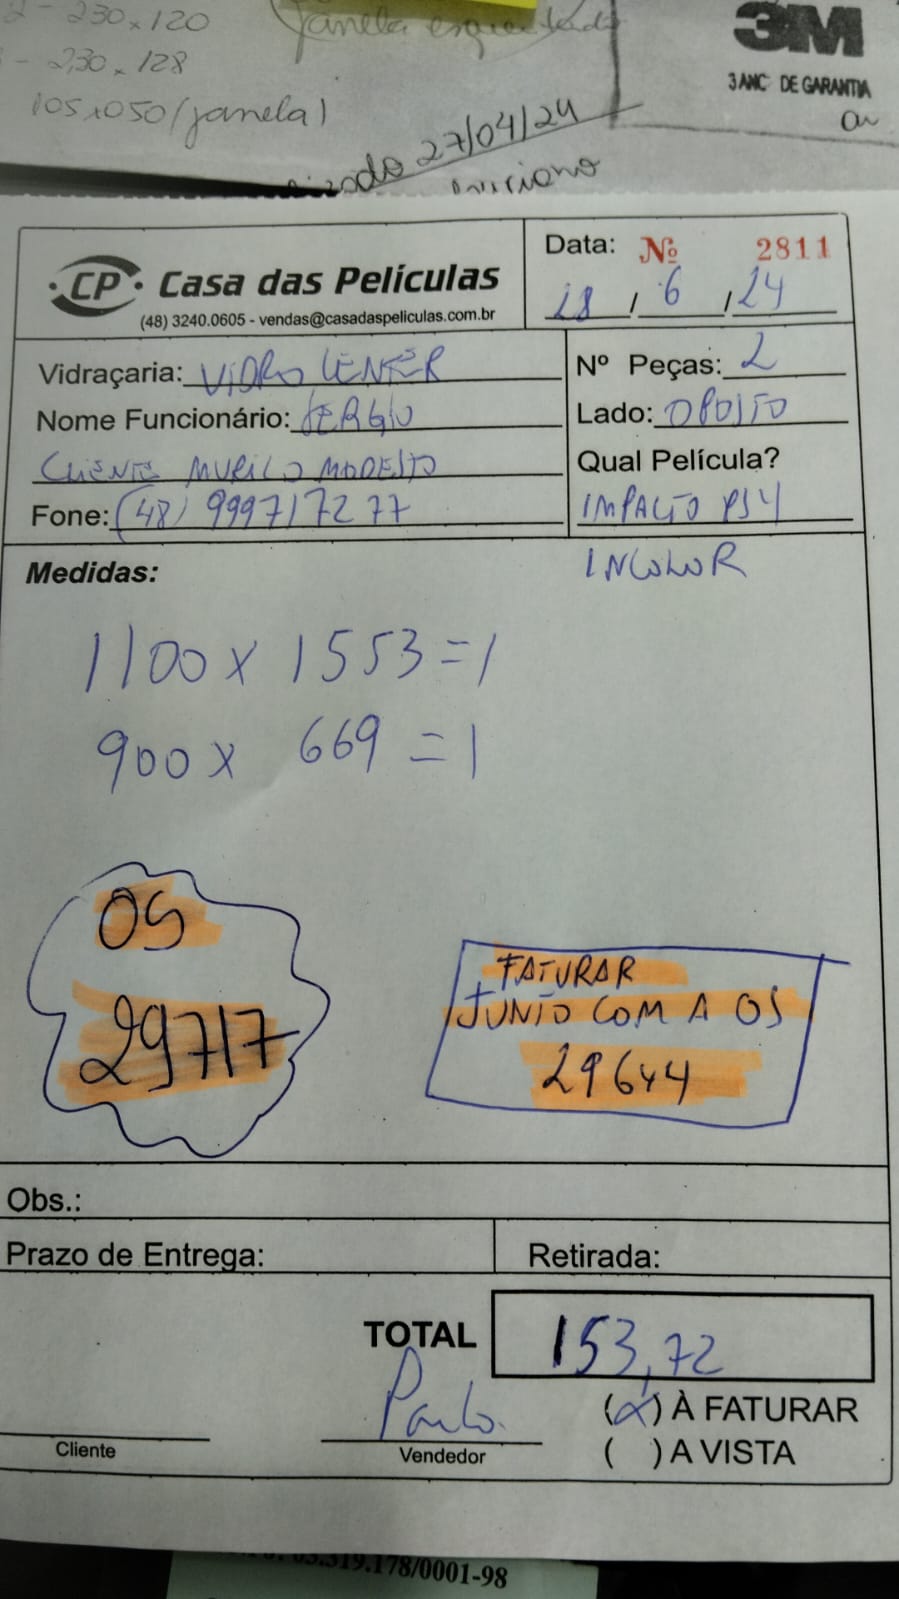 2 - 230 x 120
janela esquentado
- 2,30 x 128
105 x 050 (janela)
3M
3 ANC DE GARANTIA
27/04/24
CP
Casa das Películas
(48) 3240.0605 - vendas@casadaspeliculas.com.br
Data: Nº 2811
28 / 6 / 24
Vidraçaria: VIDRO CENTER
Nº Peças: 2
Nome Funcionário: SERGIO
Lado: OPOSTO
CLIENTE MURILO MODESTO
Qual Película?
Fone: (48) 999717277
IMPACTO PS4
INCOLOR
Medidas:
1100 x 1553 = 1
900 x 669 = 1
OS
29717
FATURAR
JUNTO COM A OS
29644
Obs.:
Prazo de Entrega:
Retirada:
TOTAL 153,72
Paulo
(x) À FATURAR
Cliente
Vendedor
( ) A VISTA
.319.178/0001-98